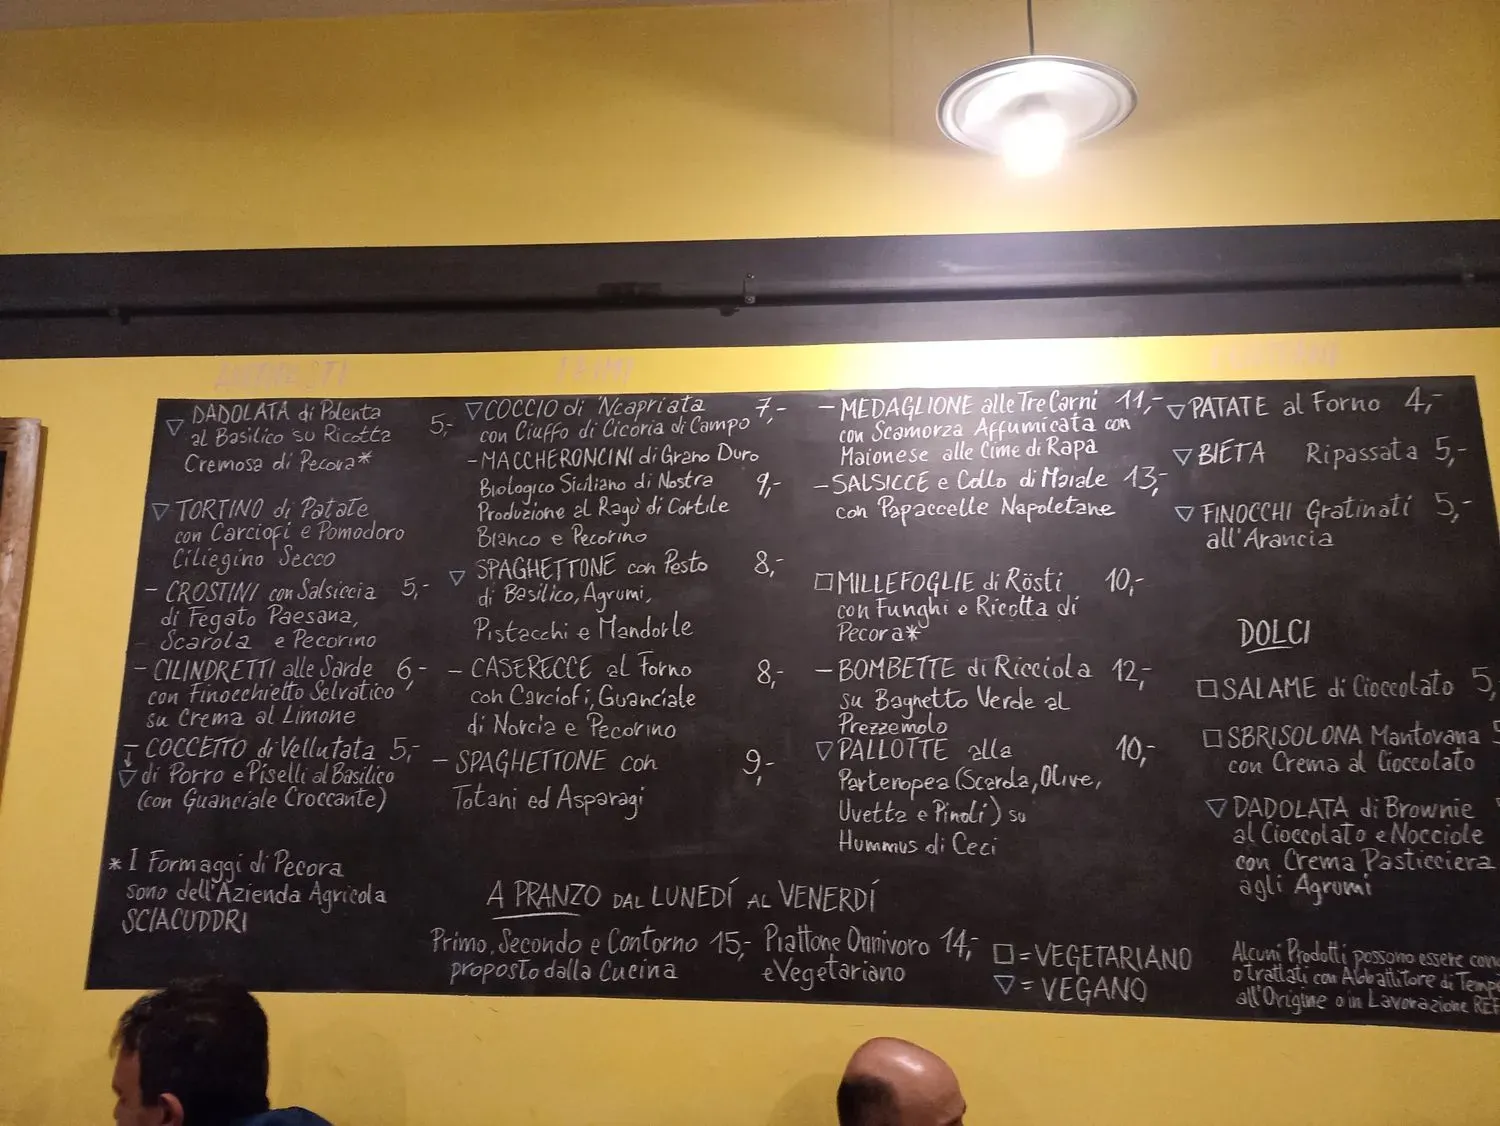 ANTIPASTI
DADOLATA di Polenta 5,-
al Basilico su Ricotta
Cremosa di Pecora*
TORTINO di Patate
con Carciofi e Pomodoro
Ciliegino Secco
- CROSTINI con Salsiccia 5,-
di Fegato Paesana,
Scarola e Pecorino
- CILINDRETTI alle Sarde 6,-
con Finocchietto Selvatico
su Crema al Limone
- COCCETTO di Vellutata 5,-
di Porro e Piselli al Basilico
(con Guanciale Croccante)
* I Formaggi di Pecora
sono dell'Azienda Agricola
SCIACUDDRI
PRIMI
COCCIO di 'Ncapriata 7,-
con Ciuffo di Cicoria di Campo
- MACCHERONCINI di Grano Duro
Biologico Siciliano di Nostra 9,-
Produzione al Ragù di Cortile
Bianco e Pecorino
SPAGHETTONE con Pesto 8,-
di Basilico, Agrumi,
Pistacchi e Mandorle
- CASERECCE al Forno 8,-
con Carciofi, Guanciale
di Norcia e Pecorino
- SPAGHETTONE con 9,-
Totani ed Asparagi
- MEDAGLIONE alle Tre Carni 11,-
con Scamorza Affumicata con
Maionese alle Cime di Rapa
- SALSICCE e Collo di Maiale 13,-
con Papaccelle Napoletane
MILLEFOGLIE di Rösti 10,-
con Funghi e Ricotta di
Pecora*
- BOMBETTE di Ricciola 12,-
su Bagnetto Verde al
Prezzemolo
PALLOTTE alla 10,-
Partenopea (Scarola, Olive,
Uvetta e Pinoli) su
Hummus di Ceci
CONTORNI
PATATE al Forno 4,-
BIETA Ripassata 5,-
FINOCCHI Gratinati 5,-
all'Arancia
DOLCI
SALAME di Cioccolato 5,
SBRISOLONA Mantovana 5
con Crema al Cioccolato
DADOLATA di Brownie
al Cioccolato e Nocciole
con Crema Pasticciera
agli Agrumi
A PRANZO DAL LUNEDÍ AL VENERDÍ
Primo, Secondo e Contorno 15,-
proposto dalla Cucina
Piattone Onnivoro 14,-
e Vegetariano
= VEGETARIANO
= VEGANO
Alcuni Prodotti possono essere
o trattati con Abbattitore di
all'Origine o in Lavorazione